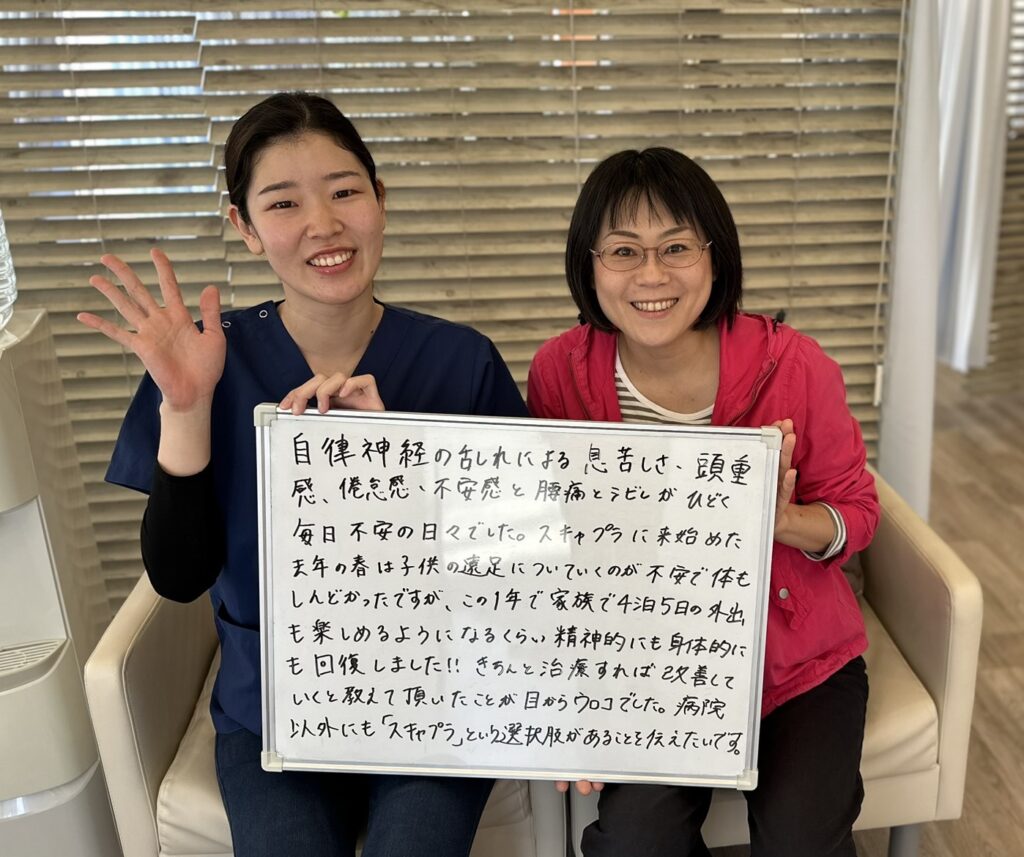 自律神経の乱れによる息苦しさ、頭重
感、倦怠感、不安感と腰痛とシビレがひどく
毎日不安の日々でした。スキャプラに来始めた
去年の春は子供の遠足についていくのが不安で体も
しんどかったですが、この1年で家族で4泊5日の外出
も楽しめるようになるくらい精神的にも身体的に
も回復しました!! きちんと治療すれば改善して
いくと教えて頂いたことが目からウロコでした。病院
以外にも「スキャプラ」という選択肢があることを伝えたいです。